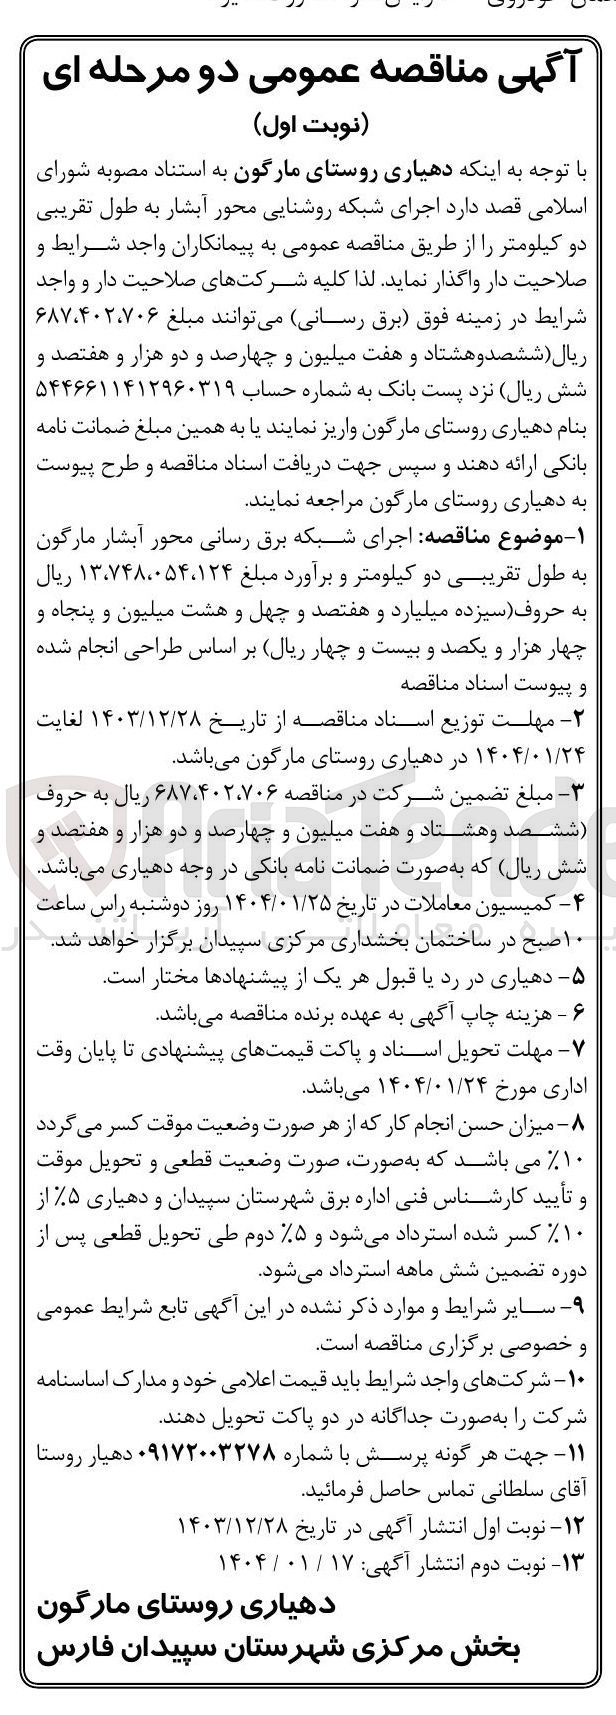 آگهی مناقصه عمومی دو مرحله ای
(نوبت اول)
با توجه به اینکه دهیاری روستای مارگون به استناد مصوبه شورای
اسلامی قصد دارد اجرای شبکه روشنایی محور آبشار به طول تقریبی
دو کیلومتر را از طریق مناقصه عمومی به پیمانکاران واجد شرایط و
صلاحیت دار واگذار نماید. لذا کلیه شرکت‌های صلاحیت دار و واجد
شرایط در زمینه فوق (برق رسانی) می‌توانند مبلغ ۶۸۷،۴۰۲،۷۰۶
ریال(ششصدوهشتاد و هفت میلیون و چهارصد و دو هزار و هفتصد و
شش ریال) نزد پست بانک به شماره حساب ۵۴۴۶۶۱۱۴۱۲۹۶۰۳۱۹
بنام دهیاری روستای مارگون واریز نمایند یا به همین مبلغ ضمانت نامه
بانکی ارائه دهند و سپس جهت دریافت اسناد مناقصه و طرح پیوست
به دهیاری روستای مارگون مراجعه نمایند.
۱-موضوع مناقصه: اجرای شبکه برق رسانی محور آبشار مارگون
به طول تقریبی دو کیلومتر و برآورد مبلغ ۱۳،۷۴۸،۰۵۴،۱۲۴ ریال
به حروف(سیزده میلیارد و هفتصد و چهل و هشت میلیون و پنجاه و
چهار هزار و یکصد و بیست و چهار ریال) بر اساس طراحی انجام شده
و پیوست اسناد مناقصه
۲- مهلت توزیع اسناد مناقصه از تاریخ ۱۴۰۳/۱۲/۲۸ لغایت
۱۴۰۴/۰۱/۲۴ در دهیاری روستای مارگون می‌باشد.
۳- مبلغ تضمین شرکت در مناقصه ۶۸۷،۴۰۲،۷۰۶ ریال به حروف
(ششصد وهشتاد و هفت میلیون و چهارصد و دو هزار و هفتصد و
شش ریال) که به‌صورت ضمانت نامه بانکی در وجه دهیاری می‌باشد.
۴- کمیسیون معاملات در تاریخ ۱۴۰۴/۰۱/۲۵ روز دوشنبه راس ساعت
۱۰صبح در ساختمان بخشداری مرکزی سپیدان برگزار خواهد شد.
۵- دهیاری در رد یا قبول هر یک از پیشنهادها مختار است.
۶ - هزینه چاپ آگهی به عهده برنده مناقصه می‌باشد.
۷- مهلت تحویل اسناد و پاکت قیمت‌های پیشنهادی تا پایان وقت
اداری مورخ ۱۴۰۴/۰۱/۲۴ می‌باشد.
۸- میزان حسن انجام کار که از هر صورت وضعیت موقت کسر می‌گردد
۱۰٪ می باشد که به‌صورت، صورت وضعیت قطعی و تحویل موقت
و تأیید کارشناس فنی اداره برق شهرستان سپیدان و دهیاری ۵٪ از
۱۰٪ کسر شده استرداد می‌شود و ۵٪ دوم طی تحویل قطعی پس از
دوره تضمین شش ماهه استرداد می‌شود.
۹- سایر شرایط و موارد ذکر نشده در این آگهی تابع شرایط عمومی
و خصوصی برگزاری مناقصه است.
۱۰- شرکت‌های واجد شرایط باید قیمت اعلامی خود و مدارک اساسنامه
شرکت را به‌صورت جداگانه در دو پاکت تحویل دهند.
۱۱- جهت هر گونه پرسش با شماره ۰۹۱۷۲۰۰۳۲۷۸ دهیار روستا
آقای سلطانی تماس حاصل فرمائید.
۱۲- نوبت اول انتشار آگهی در تاریخ ۱۴۰۳/۱۲/۲۸
۱۳- نوبت دوم انتشار آگهی: ۱۷ / ۰۱ / ۱۴۰۴
دهیاری روستای مارگون
بخش مرکزی شهرستان سپیدان فارس